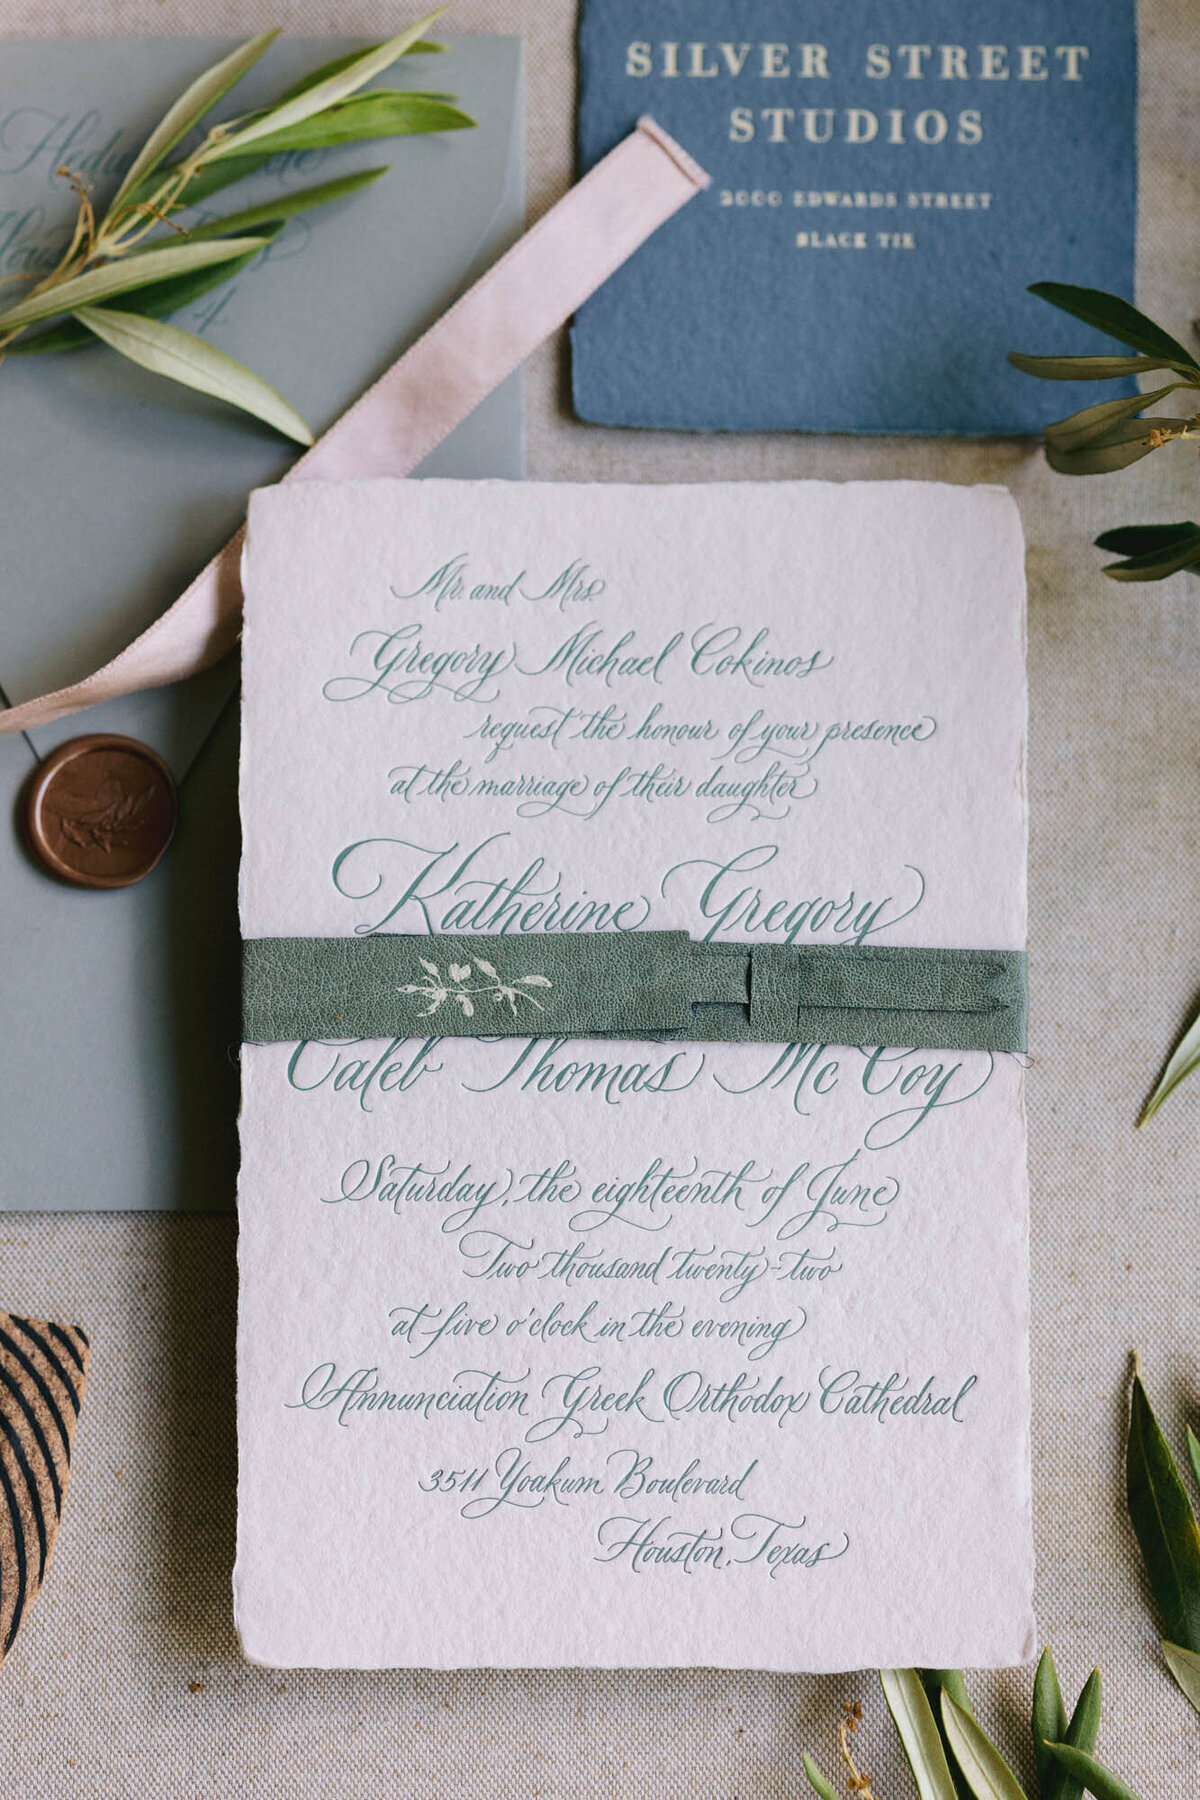 SILVER STREET
STUDIOS
2000 EDWARDS STREET
BLACK TIE
Mr. and Mrs.
Gregory Michael Cokinos
request the honour of your presence
at the marriage of their daughter
Katherine Gregory
Caleb Thomas McCoy
Saturday, the eighteenth of June
Two thousand twenty-two
at five o'clock in the evening
Annunciation Greek Orthodox Cathedral
3511 Yoakum Boulevard
Houston, Texas